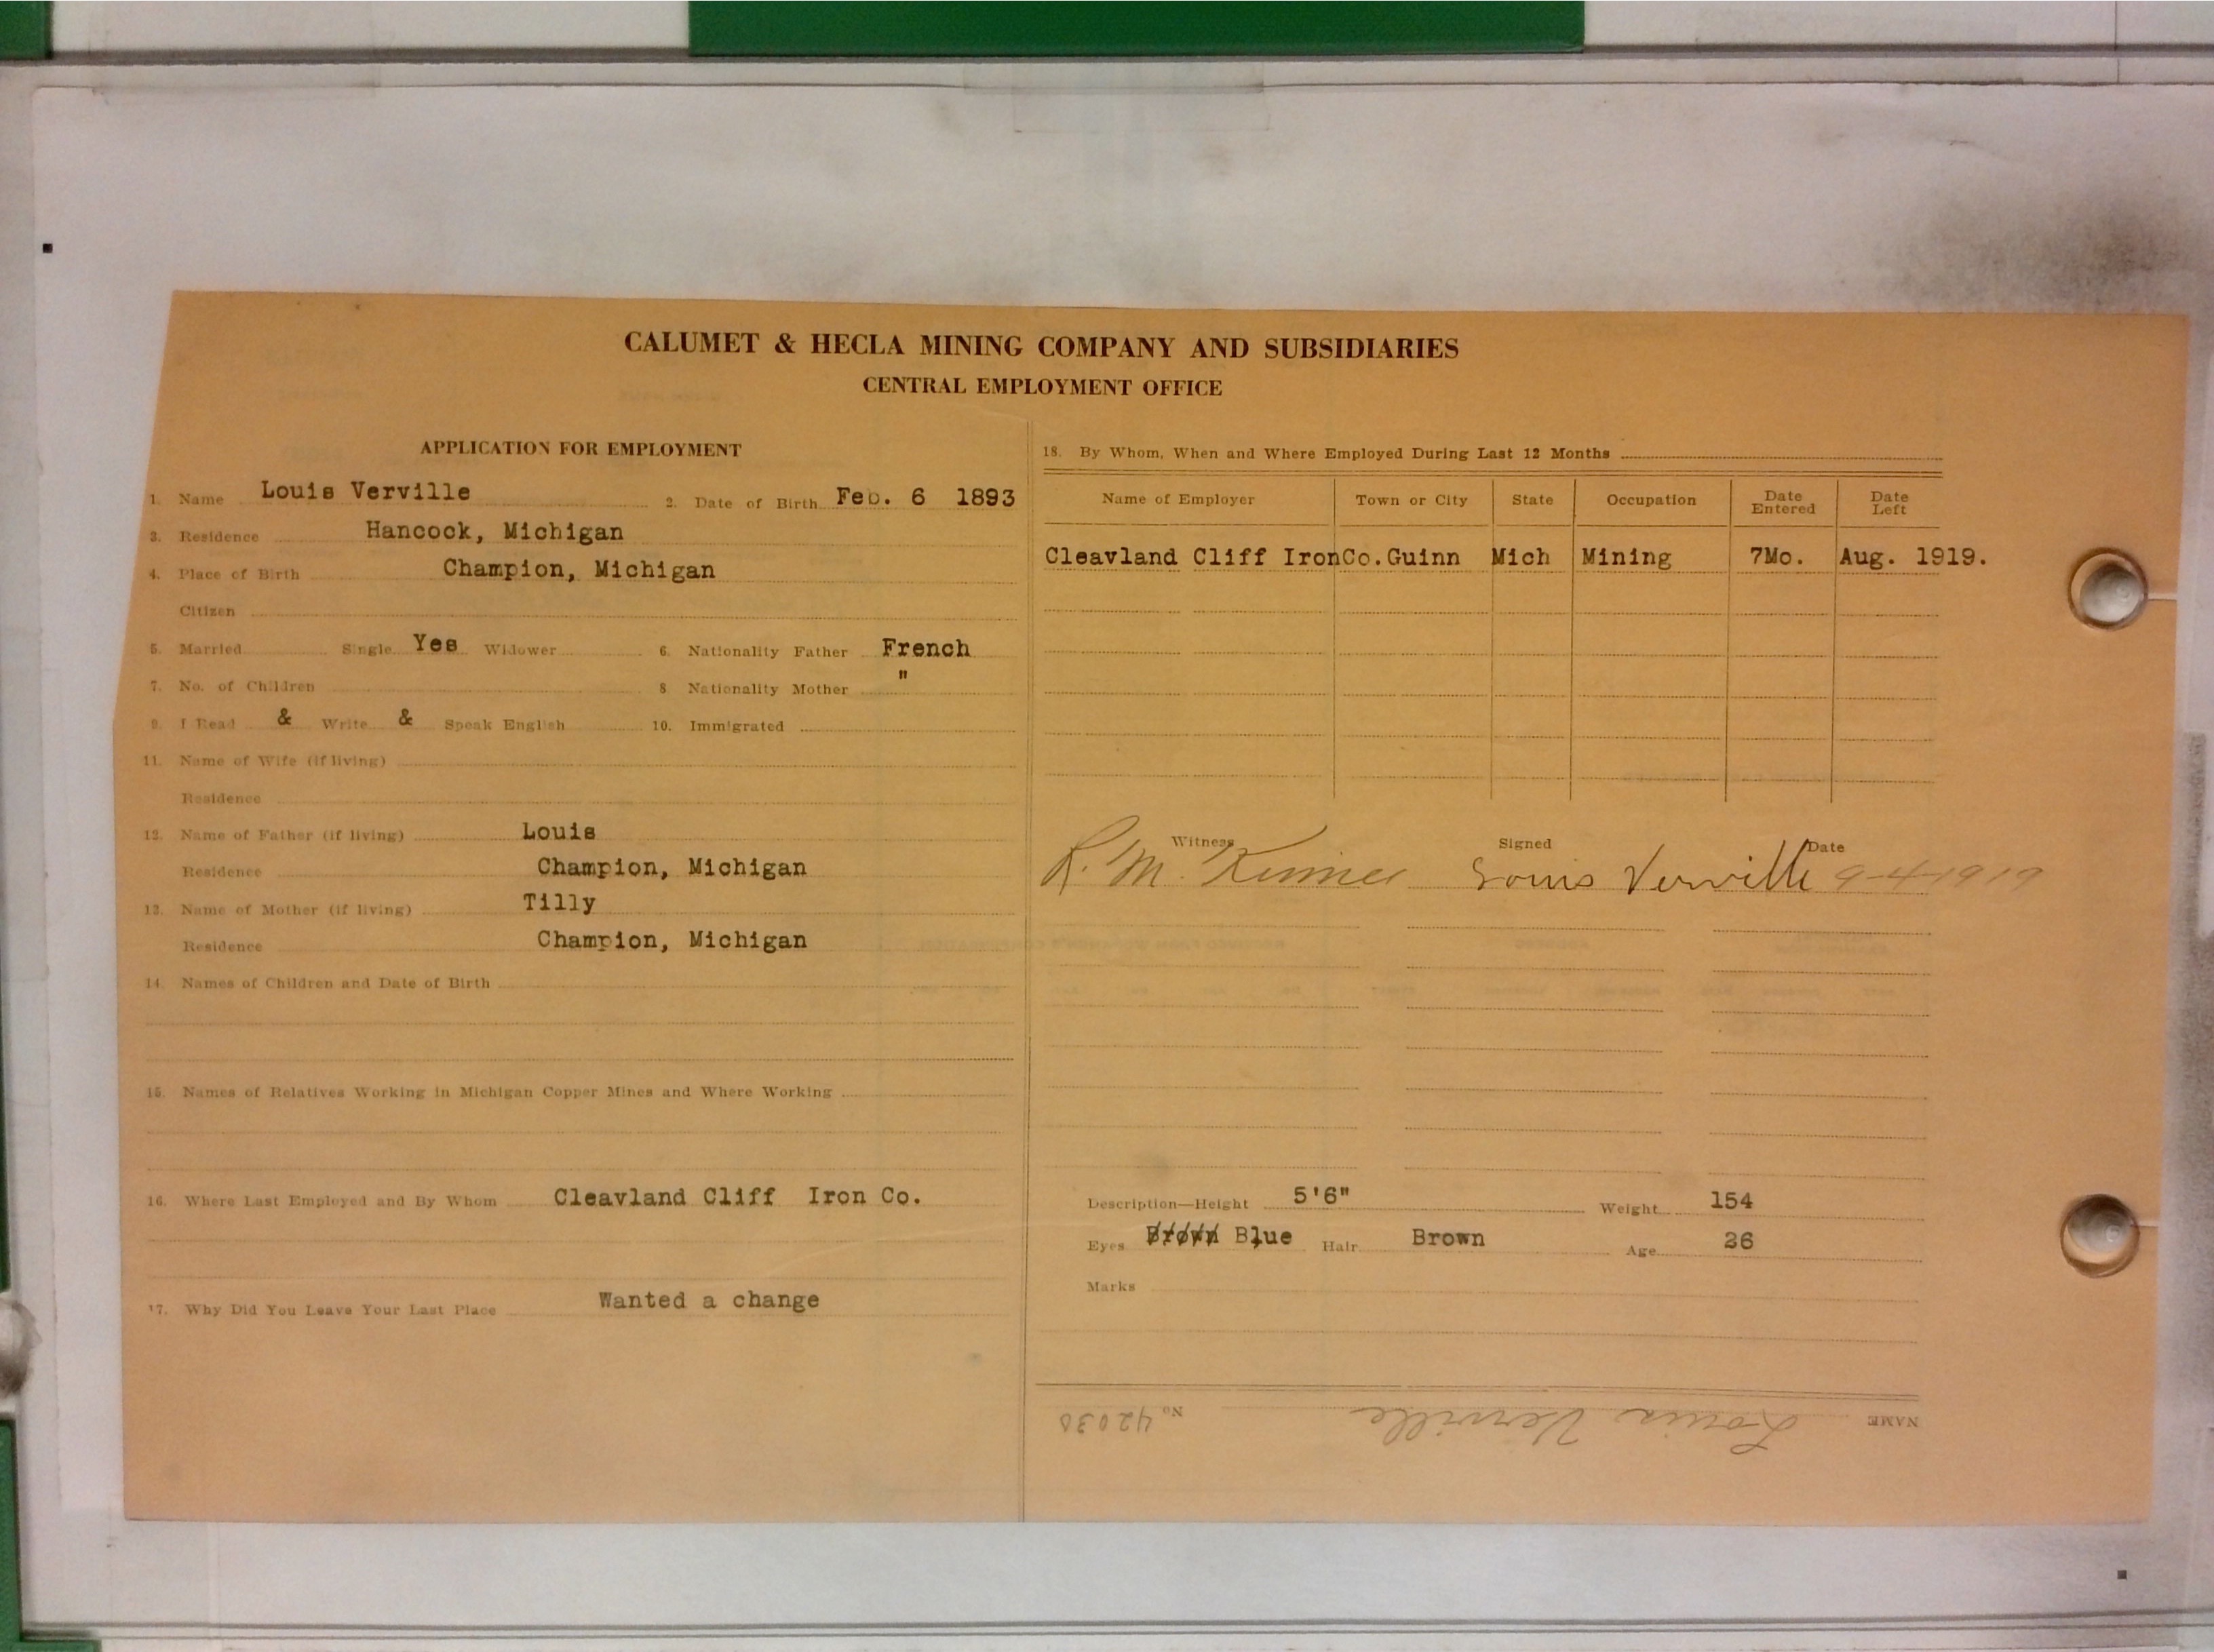 CALUMET & HECLA MINING COMPANY AND SUBSIDIARIES
CENTRAL EMPLOYMENT OFFICE
APPLICATION FOR EMPLOYMENT
1. Name Louis Verville 2. Date of Birth Feb. 6 1893
3. Residence Hancock, Michigan
4. Place of Birth Champion, Michigan
Citizen
5. Married Single Yes Widower 6. Nationality Father French
7. No. of Children 8 Nationality Mother "
9. I Read & Write & Speak English 10. Immigrated
11. Name of Wife (if living)
Residence
12. Name of Father (if living) Louis
Residence Champion, Michigan
13. Name of Mother (if living) Tilly
Residence Champion, Michigan
14. Names of Children and Date of Birth
15. Names of Relatives Working in Michigan Copper Mines and Where Working
16. Where Last Employed and By Whom Cleavland Cliff Iron Co.
17. Why Did You Leave Your Last Place Wanted a change
18. By Whom, When and Where Employed During Last 12 Months
Name of Employer Town or City State Occupation Date Entered Date Left
Cleavland Cliff IronCo. Guinn Mich Mining 7Mo. Aug. 1919.
Witness Signed Date
R. M. Louis Verville 9-4-1919
Description—Height 5'6" Weight 154
Eyes Brown Blue Hair Brown Age 26
Marks
NAME Louis Verville No. 42030